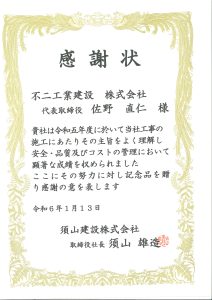 感謝状
不二工業建設　株式会社
代表取締役　佐野　直仁　様
貴社は令和五年度に於いて当社工事の
施工にあたりその主旨をよく理解し
安全・品質及びコストの管理において
顕著な成績を収められました
ここにその努力に対し記念品を贈
り感謝の意を表します
令和6年1月13日
須山建設株式会社
取締役社長　須山　雄造